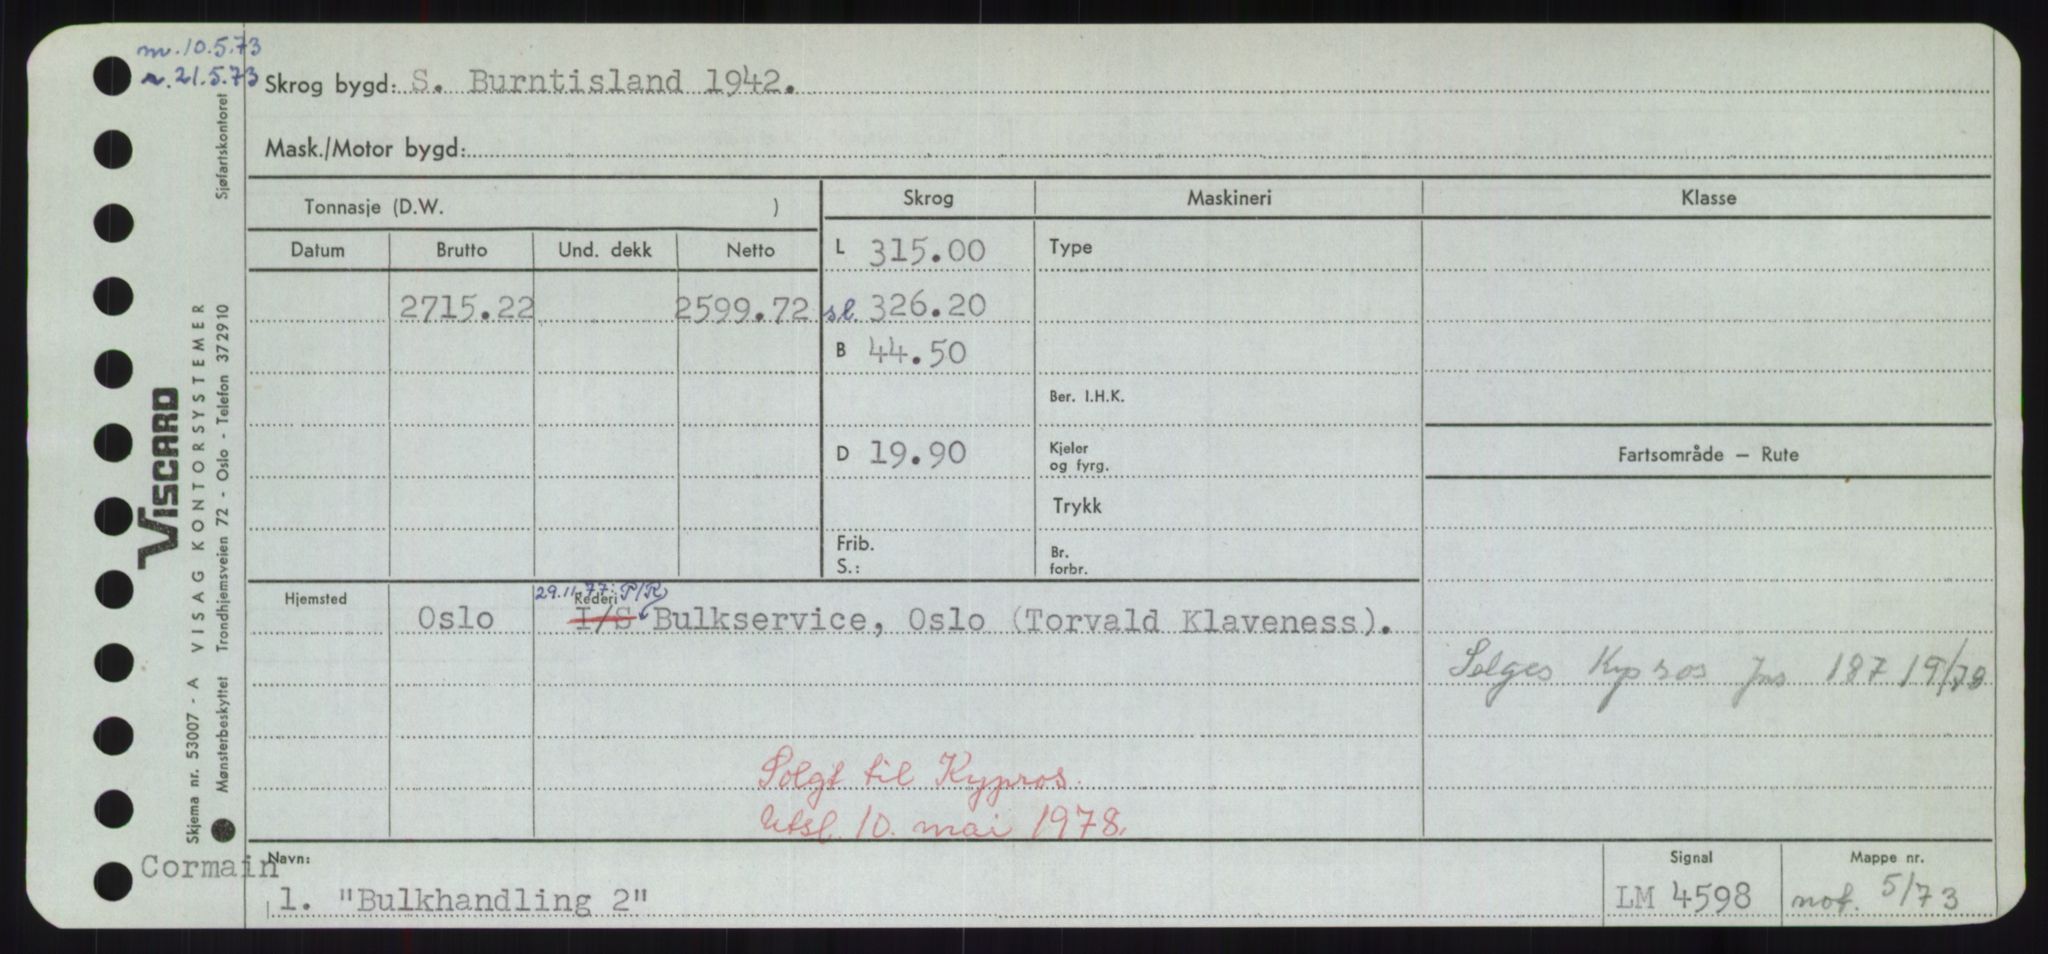 m. 10.5.73
r. 21.5.73
Skrog bygd: S. Burntisland 1942.
Mask./Motor bygd:
Tonnasje (D.W. )
Skrog
Maskineri
Klasse
Datum Brutto Und. dekk Netto
L 315.00
Type
2715.22 2599.72
sl. 326.20
B 44.50
Ber. I.H.K.
D 19.90
Kjeler
og fyrg.
Fartsområde — Rute
Trykk
Frib.
S.:
Br.
forbr.
29.11.77: P/R
Hjemsted
Rederi
Oslo I/S Bulkservice, Oslo (Torvald Klaveness).
Selges Kypros Jns 187 19/78
Solgt til Kypros.
Utsl. 10. mai 1978.
Cormain
Navn:
1. "Bulkhandling 2"
Signal
LM 4598
Mappe nr.
not. 5/73
Sjøfartskontoret
VISCARD
VISAG KONTORSYSTEMER
Trondhjemsveien 72 - Oslo - Telefon 372910
Skjema nr. 53007 - A
Mønsterbeskyttet